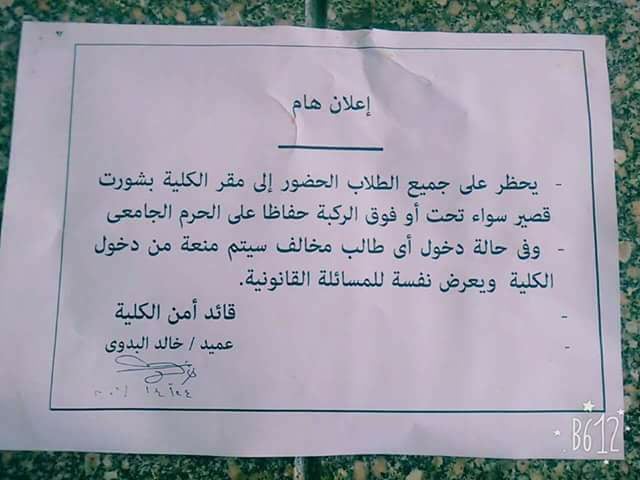 إعلان هام
- يحظر على جميع الطلاب الحضور إلى مقر الكلية بشورت
قصير سواء تحت أو فوق الركبة حفاظا على الحرم الجامعى
- وفى حالة دخول أى طالب مخالف سيتم منعة من دخول
الكلية ويعرض نفسة للمسائلة القانونية.
- قائد أمن الكلية
- عميد / خالد البدوى
B612